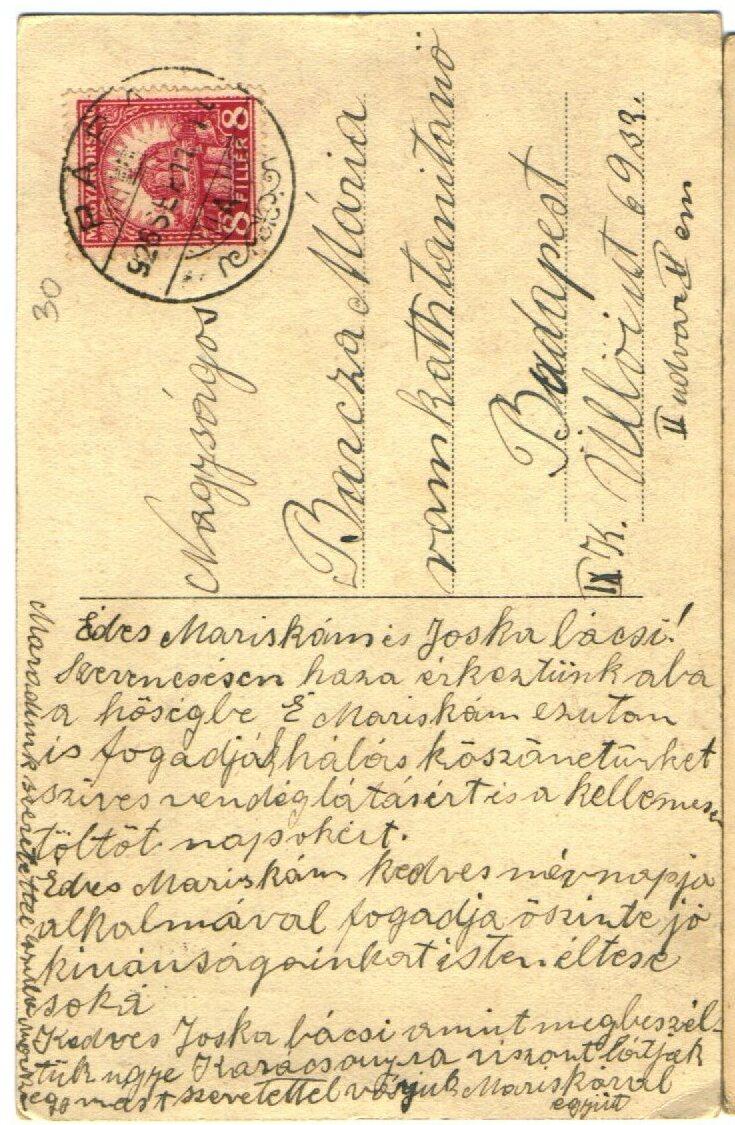 MAGYARORSZÁG
8 FILLÉR 8
PÁPA
928 SEP 11
30
Nagyságos
Barcza Mária
róm kath tanitonö
Budapest
IX K. Üllöi ut 69 sz.
II udvar V em
Édes Mariskám és Joska bácsi!
Szerencsésen haza érkeztünk aba
a höségbe É Mariskám ezutan
is fogadják hálás köszönetünket
szives vendéglátásért is a kellemesen
töltöt napokért.
Edes Mariskám kedves névnapja
alkalmával fogadja öszinte jó
kivánságainkat isten éltese
soká
Kedves Joska bácsi amint megbeszél-
tük ugye Karácsonyra viszont látjuk
egymást szeretettel várjuk Mariskával
együtt
Maradunk szeretettel